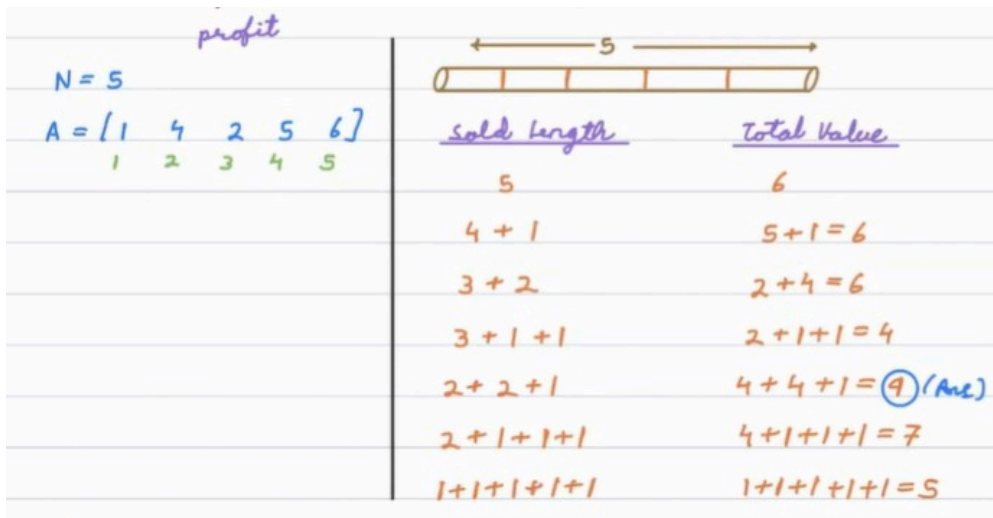 profit
N = 5
A = [1 4 2 5 6]
1 2 3 4 5
5
Sold Length Total Value
5 6
4 + 1 5+1=6
3 + 2 2+4=6
3 + 1 +1 2+1+1=4
2+ 2 +1 4+4+1=9 (Ans)
2+1+1+1 4+1+1+1=7
1+1+1+1+1 1+1+1+1+1=5